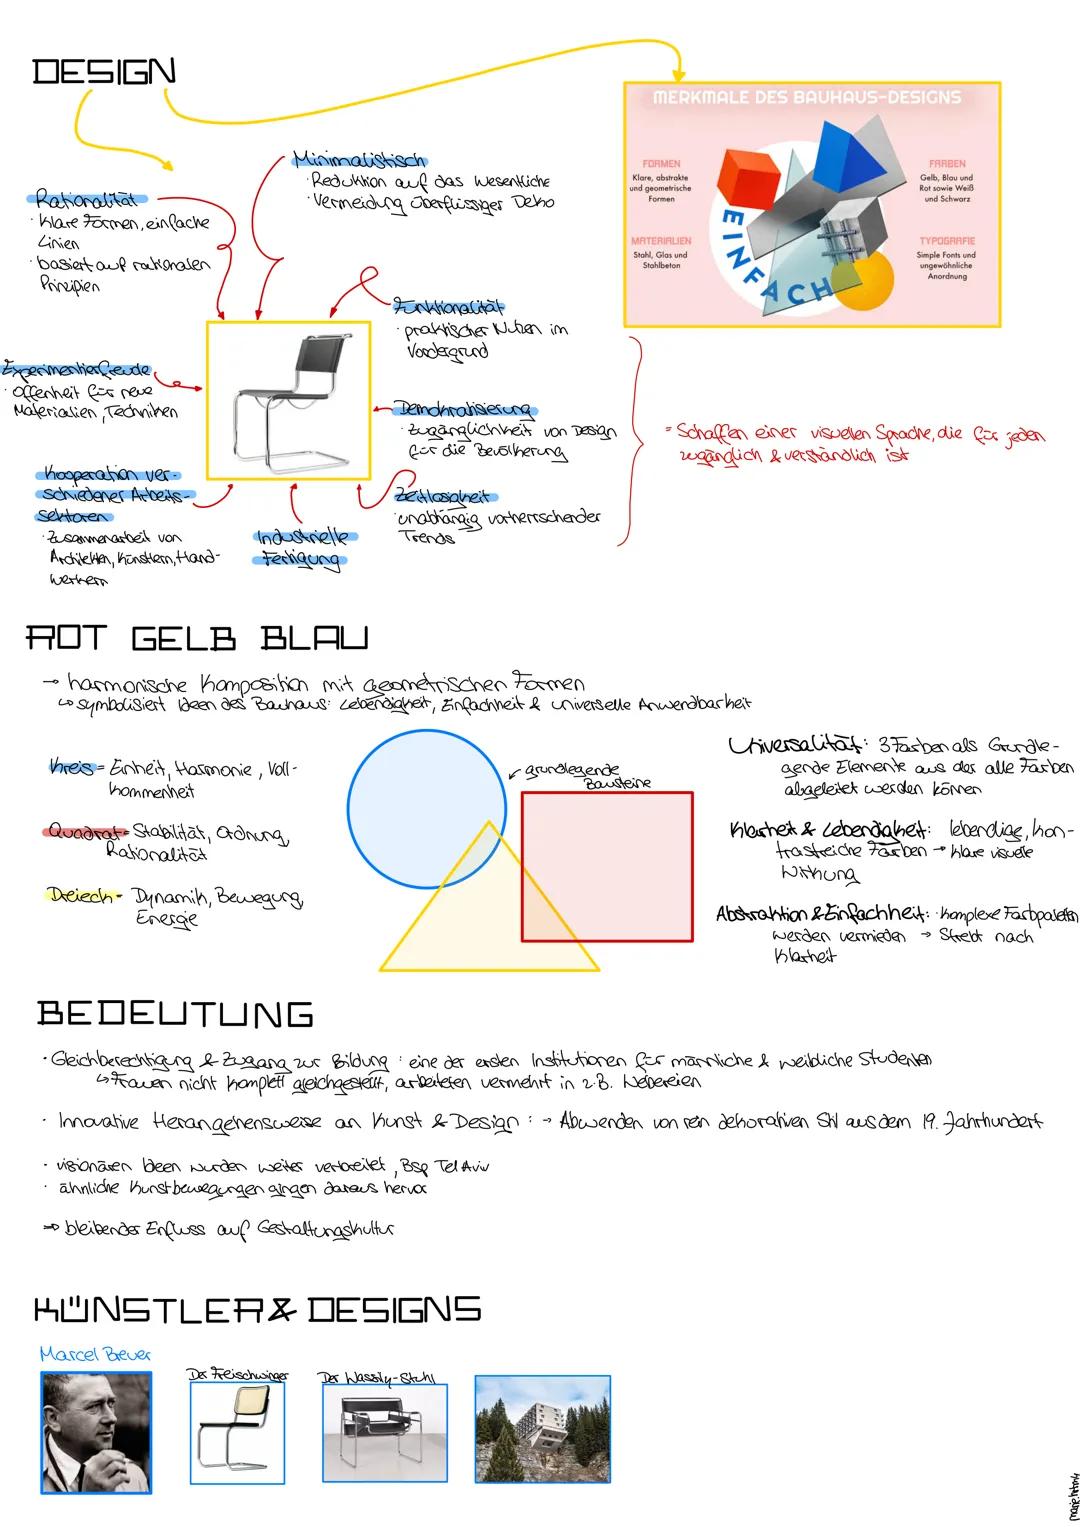 DESIGN
Rationalität
· klare Formen, einfache
Linien
· basiert auf rationalen
Prinzipien
Minimalistisch
· Reduktion auf das Wesentliche
· Vermeidung überflüssiger Deko
MERKMALE DES BAUHAUS-DESIGNS
FORMEN
Klare, abstrakte
und geometrische
Formen
FARBEN
Gelb, Blau und
Rot sowie Weiß
und Schwarz
MATERIALIEN
Stahl, Glas und
Stahlbeton
TYPOGRAFIE
Simple Fonts und
ungewöhnliche
Anordnung
EINFACH
Funktionalität
· praktischer Nutzen im
Vordergrund
Experimentierfreude
· Offenheit für neue
Materialien, Techniken
Demokratisierung
· Zugänglichkeit von Design
für die Bevölkerung
= Schaffen einer visuellen Sprache, die für jeden
zugänglich & verständlich ist
Kooperation ver-
schiedener Arbeits-
sektoren
· Zusammenarbeit von
Architekten, Künstlern, Hand-
werkern
Industrielle
Fertigung
Zeitlosigkeit
· unabhängig vorherrschender
Trends
ROT GELB BLAU
→ harmonische Komposition mit geometrischen Formen
↳ symbolisiert Ideen des Bauhaus: Lebendigkeit, Einfachheit & universelle Anwendbarkeit
Kreis = Einheit, Harmonie, Voll-
kommenheit
Quadrat = Stabilität, Ordnung,
Rationalität
Dreieck - Dynamik, Bewegung,
Energie
grundlegende
Bausteine
Universalität: 3 Farben als Grundle-
gende Elemente aus der alle Farben
abgeleitet werden können
Klarheit & Lebendigkeit: lebendige, kon-
trastreiche Farben → klare visuelle
Wirkung
Abstraktion & Einfachheit: · komplexe Farbpaletten
werden vermieden → Strebt nach
Klarheit
BEDEUTUNG
· Gleichberechtigung & Zugang zur Bildung: eine der ersten Institutionen für männliche & weibliche Studenten
↳ Frauen nicht komplett gleichgestellt, arbeiteten vermehrt in z.B. Webereien
· Innovative Herangehensweise an Kunst & Design: → Abwenden von rein dekorativen Stil aus dem 19. Jahrhundert
· visionären Ideen wurden weiter verbreitet, Bsp Tel Aviv
· ähnliche Kunstbewegungen gingen daraus hervor
⇒ bleibender Einfluss auf Gestaltungskultur
KÜNSTLER & DESIGNS
Marcel Breuer
Der Freischwinger
Der Wassily-Stuhl